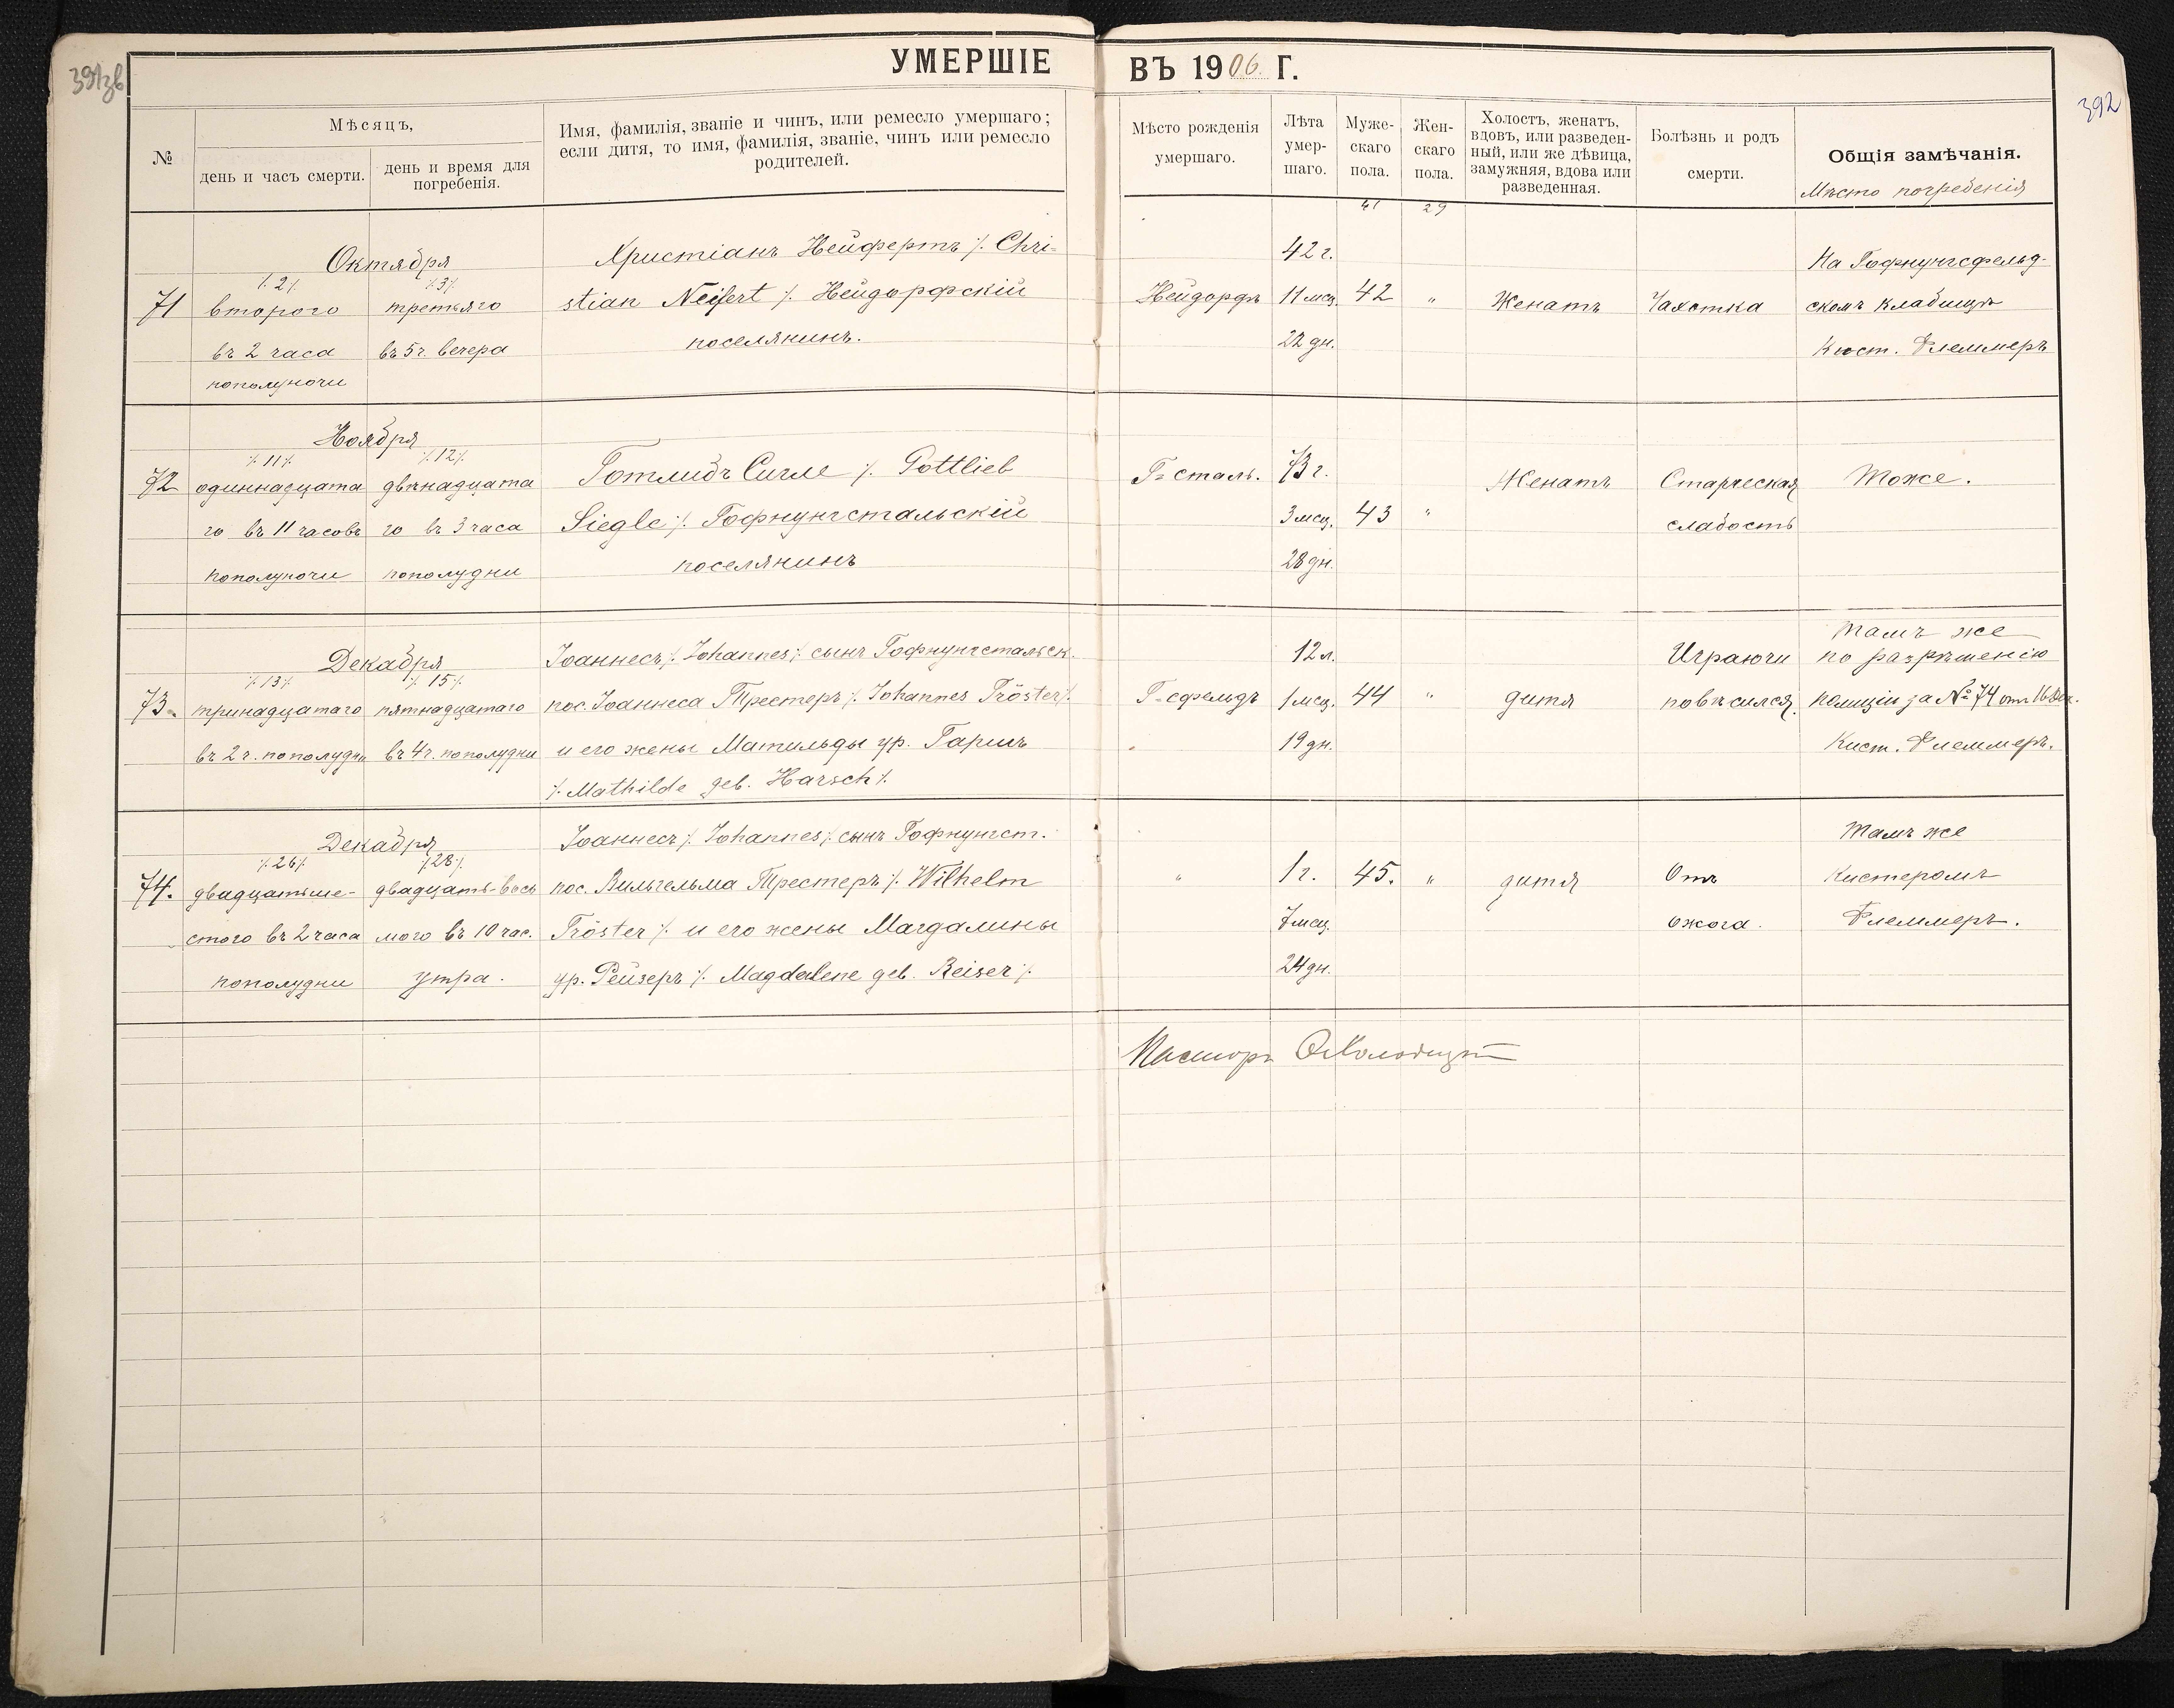 391зв
УМЕРШІЕ ВЪ 1906. Г.
392
№
Мѣсяцъ,
день и часъ смерти.
день и время для
погребенія.
Имя, фамилія, званіе и чинъ, или ремесло умершаго;
если дитя, то имя, фамилія, званіе, чинъ или ремесло
родителей.
Мѣсто рожденія
умершаго.
Лѣта
умер-
шаго.
Муже-
скаго
пола.
Жен-
скаго
пола.
Холостъ, женатъ,
вдовъ, или разведен-
ный, или же дѣвица,
замужняя, вдова или
разведенная.
Болѣзнь и родъ
смерти.
Общія замѣчанія.
Мѣсто погребенія
41
29
71
Октября
⁒ 2 ⁒
второго
въ 2 часа
пополуночи
⁒ 3 ⁒
третьяго
въ 5 ч. вечера
Христіанъ Нейфертъ ⁒ Chri-
stian Neifert ⁒ Нейдорфскій
поселянинъ.
Нейдорфъ
42 г.
11 мсц.
22 дн.
42
"
Женатъ
Чахотка
На Гофнунгсфельд-
скомъ кладбищѣ
Кист. Флеммеръ
72
Ноября
⁒ 11 ⁒
одиннадцата
го въ 11 часовъ
пополуночи
⁒ 12 ⁒
двѣнадцата
го въ 3 часа
пополудни
Готлибъ Сигле ⁒ Gottlieb
Siegle ⁒ Гофнунгстальскій
поселянинъ
Г=сталь.
73 г.
3 мсц.
28 дн.
43
"
Женатъ
Старческая
слабость
Тоже.
73.
Декабря
⁒ 13 ⁒
тринадцатаго
въ 2 ч. пополудни
⁒ 15 ⁒
пятнадцатаго
въ 4 ч. пополудни
Іоаннесъ ⁒ Johannes ⁒ сынъ Гофнунгстальск.
пос. Іоаннеса Трестеръ ⁒ Johannes Tröster ⁒
и его жены Матильды ур. Гаршъ
⁒ Mathilde geb. Harsch ⁒
Г=сфельдъ
12 л.
1 мсц.
19 дн.
44
"
дитя
Играючи
повѣсился.
Тамъ же
по разрѣшенію
полиціи за № 74 отъ 16 Дек.
Кист. Флеммеръ.
74.
Декабря
⁒ 26 ⁒
двадцатьше-
стого въ 2 часа
пополудни
⁒ 28 ⁒
двадцать-вось
мого въ 10 час.
утра.
Іоаннесъ ⁒ Johannes ⁒ сынъ Гофнунгст.
пос. Вильгельма Трестеръ ⁒ Wilhelm
Tröster ⁒ и его жены Магдалины
ур. Рейзеръ ⁒ Magdalene geb. Reiser ⁒
"
1 г.
7 мсц.
24 дн.
45.
"
дитя
Отъ
ожога.
Тамъ же
Кистеромъ
Флеммеръ.
Пасторъ